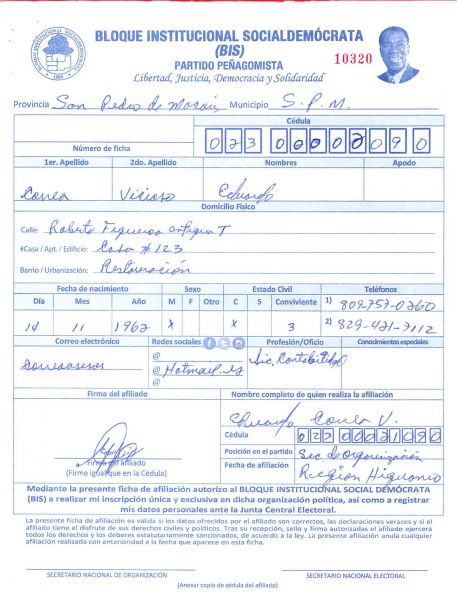 BLOQUE INSTITUCIONAL SOCIALDEMÓCRATA
(BIS)
PARTIDO PEÑAGOMISTA
10320
Libertad, Justicia, Democracia y Solidaridad
Provincia San Pedro de Macorís Municipio S. P. M.
Cédula
Número de ficha
1er. Apellido 2do. Apellido Nombres Apodo
Correa Vicioso Eduardo
Domicilio Físico
Calle: Roberto Figueroa T
#Casa / Apt. / Edificio: Casa # 123
Barrio / Urbanización: Restauración
Fecha de nacimiento Sexo Estado Civil Teléfonos
Día Mes Año M F Otro C S Conviviente 1) 809-757-0260
14 11 1962 X X 3 2) 829-421-7112
Correo electrónico Redes sociales Profesión/Oficio Conocimientos especiales
@
Correaasesores @ Hotmail.es Lic. Contabilidad
@
Firma del afiliado Nombre completo de quien realiza la afiliación
Eduardo Correa V.
Cédula
Posición en el partido Sec de organización
Firma del afiliado
(Firme igual que en la Cédula)
Fecha de afiliación Región Higuamo
Mediante la presente ficha de afiliación autorizo al BLOQUE INSTITUCIONAL SOCIAL DEMÓCRATA
(BIS) a realizar mi inscripción única y exclusiva en dicha organización política, así como a registrar
mis datos personales ante la Junta Central Electoral.
La presente ficha de afiliación es válida si los datos ofrecidos por el afiliado son correctos, las declaraciones veraces y si el
afiliado tiene el disfrute de sus derechos civiles y políticos. Tras su recepción, sello y firma autorizadas el afiliado ejercerá
todos los derechos y los deberes estatutariamente sancionados, de acuerdo a la ley. La presente afiliación anula cualquier
afiliación realizada con anterioridad a la fecha que aparece en esta ficha.
SECRETARIO NACIONAL DE ORGANIZACIÓN SECRETARIO NACIONAL ELECTORAL
(Anexar copia de cédula del afiliado)